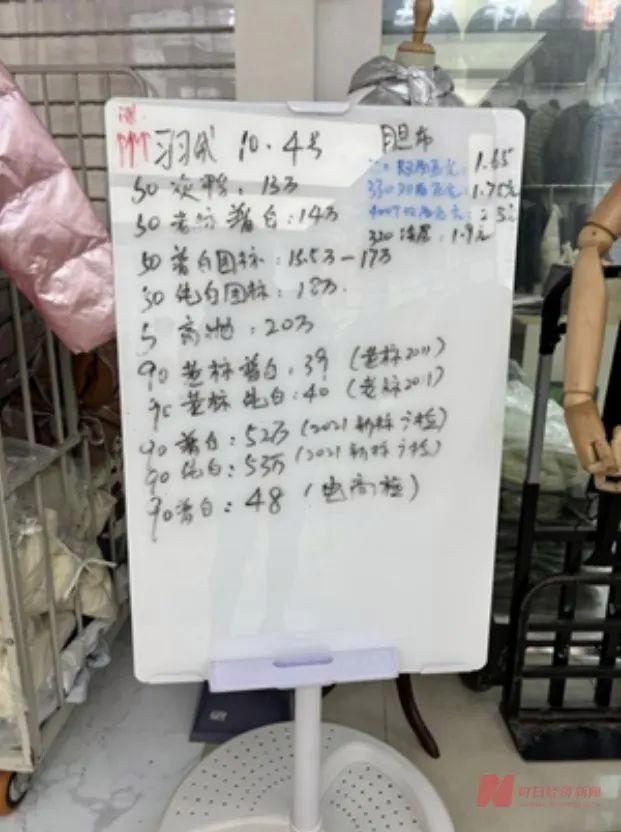 涨
↑↑↑ 羽绒 10.4号
50 灰鸭：13万
50 普白：14万
50 普白国标：15.5万—17万
50 纯白国标：18万
5 高：20万
90 老标普白：39（老标2011）
90 老标纯白：40（老标2011）
90 普白：52万（2021新标检）
90 纯白：53万（2021新标检）
90 普白：48（电商检）
胆布
元：1.65
元：1.75元
400T
320 涂层：1.9元
每日经济新闻